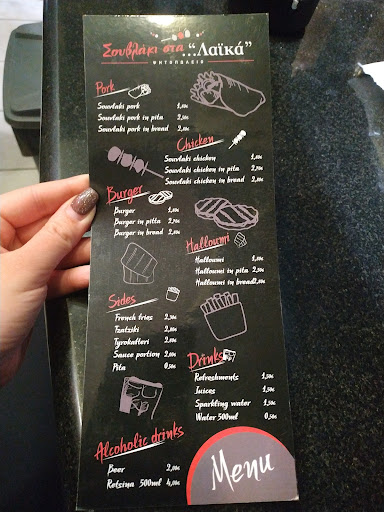 Σουβλάκι στα “Λαϊκά”
ΨΗΤΟΠΩΛΕΙΟ
Pork
Souvlaki pork 1,80€
Souvlaki pork in pita 2,50€
Souvlaki pork in bread 2,80€
Chicken
Souvlaki chicken
Souvlaki chicken in pita
Souvlaki chicken in bread
Burger
Burger
Burger in pitta
Burger in bread
Halloumi
Halloumi
Halloumi in pita
Halloumi in bread
Sides
French fries 2,50€
Tzatziki
Tyrokafteri
Sauce portion
Pita 0,50€
Drinks
Refreshments 1,50€
Juices 1,50€
Sparkling water 1,50€
Water 500ml 0,50€
Alcoholic drinks
Beer 2,00€
Retsina 500ml 4,00€
Menu